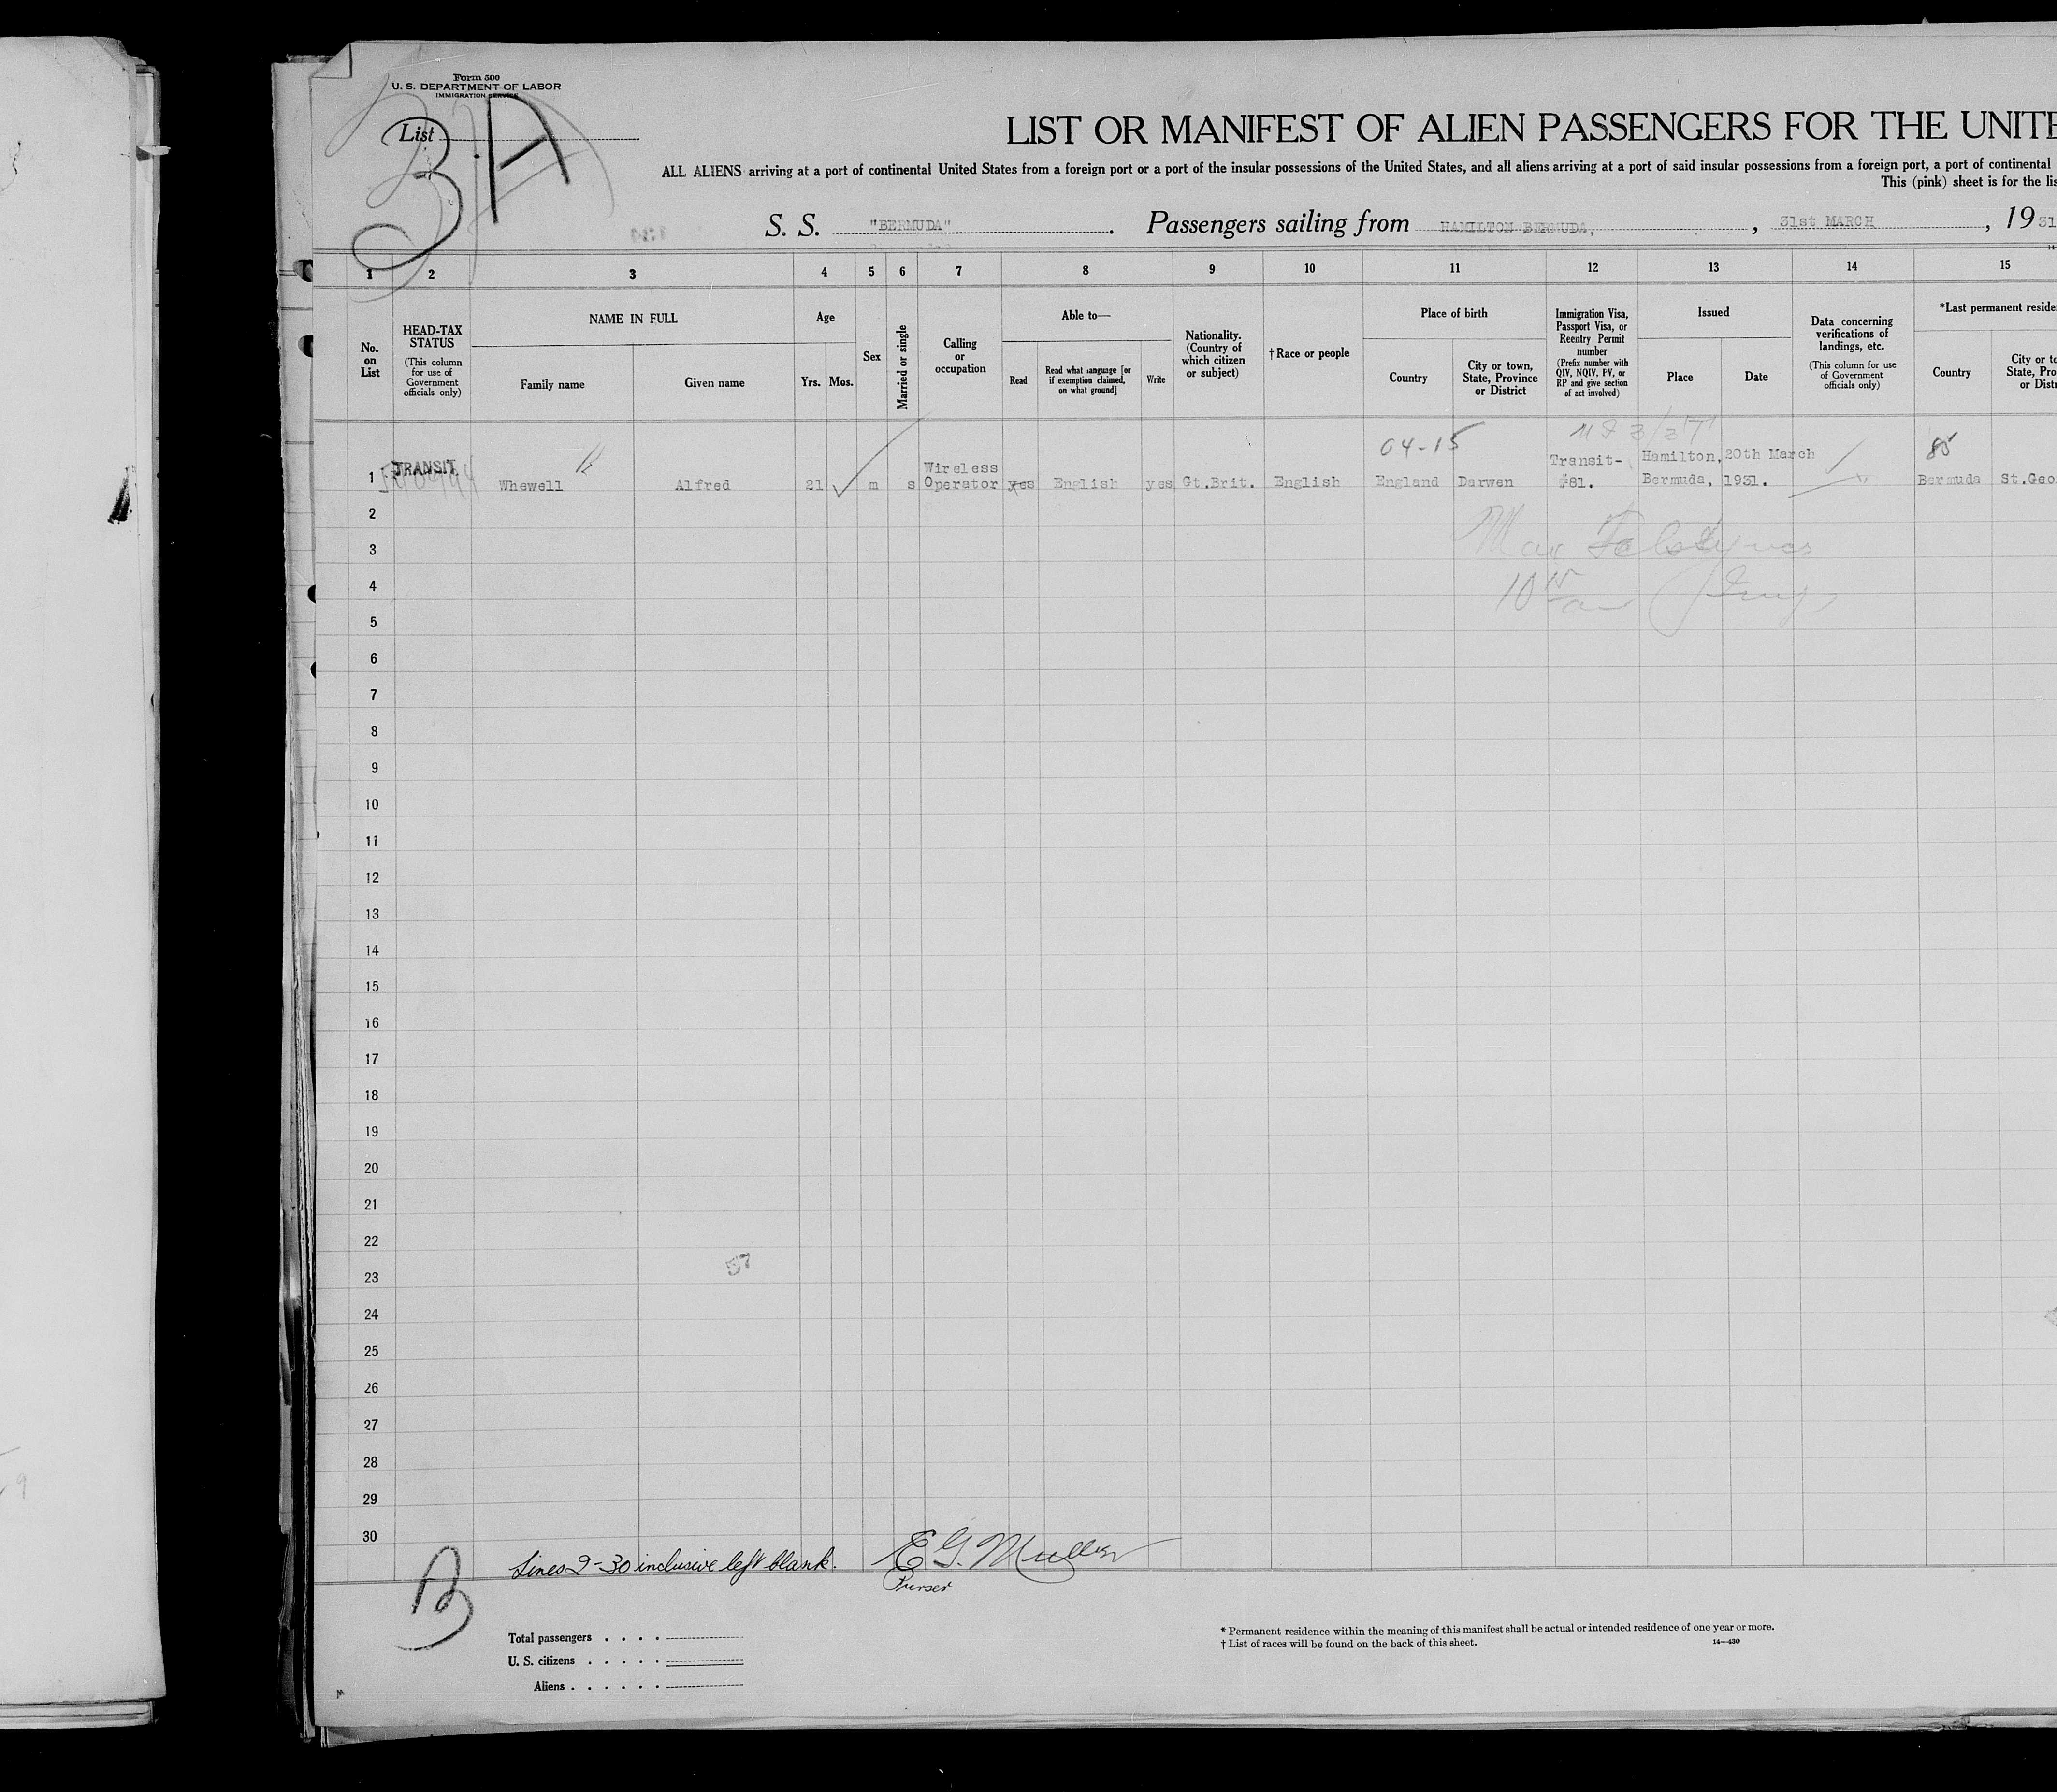 Form 500
U. S. DEPARTMENT OF LABOR
IMMIGRATION SERVICE
List
3 A
LIST OR MANIFEST OF ALIEN PASSENGERS FOR THE UNITE
ALL ALIENS arriving at a port of continental United States from a foreign port or a port of the insular possessions of the United States, and all aliens arriving at a port of said insular possessions from a foreign port, a port of continental
This (pink) sheet is for the lis
S. S. "BERMUDA". Passengers sailing from HAMILTON BERMUDA, , 31st MARCH , 1931
1 2 3 4 5 6 7 8 9 10 11 12 13 14 15
No. on List
HEAD-TAX STATUS
(This column for use of Government officials only)
NAME IN FULL
Family name
Given name
Age
Yrs.
Mos.
Sex
Married or single
Calling or occupation
Able to—
Read
Read what language [or if exemption claimed, on what ground]
Write
Nationality. (Country of which citizen or subject)
†Race or people
Place of birth
Country
City or town, State, Province or District
Immigration Visa, Passport Visa, or Reentry Permit number
(Prefix number with QIV, NQIV, PV, or RP and give section of act involved)
Issued
Place
Date
Data concerning verifications of landings, etc.
(This column for use of Government officials only)
*Last permanent reside
Country
City or to
State, Pro
or Distr
04-15
85
1 TRANSIT Whewell Alfred 21 m s Wireless Operator yes English yes Gt.Brit. English England Darwen Transit- #81. Hamilton, Bermuda, 20th March 1931. Bermuda St.Geo
2
3
4
5
6
7
8
9
10
11
12
13
14
15
16
17
18
19
20
21
22
57
23
24
25
26
27
28
29
30
Lines 2-30 inclusive left blank. E G. Muller
Purser
Total passengers . . . .
U. S. citizens . . . . .
Aliens . . . . . .
* Permanent residence within the meaning of this manifest shall be actual or intended residence of one year or more.
† List of races will be found on the back of this sheet.
14—430